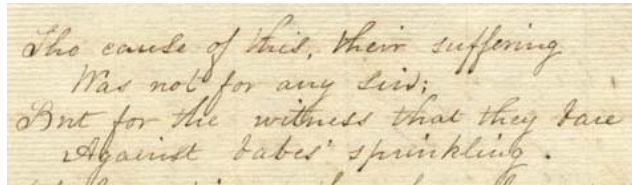 The cause of this, their suffering
Was not for any sin;
But for the witness that they bare
Against babes' sprinkling.